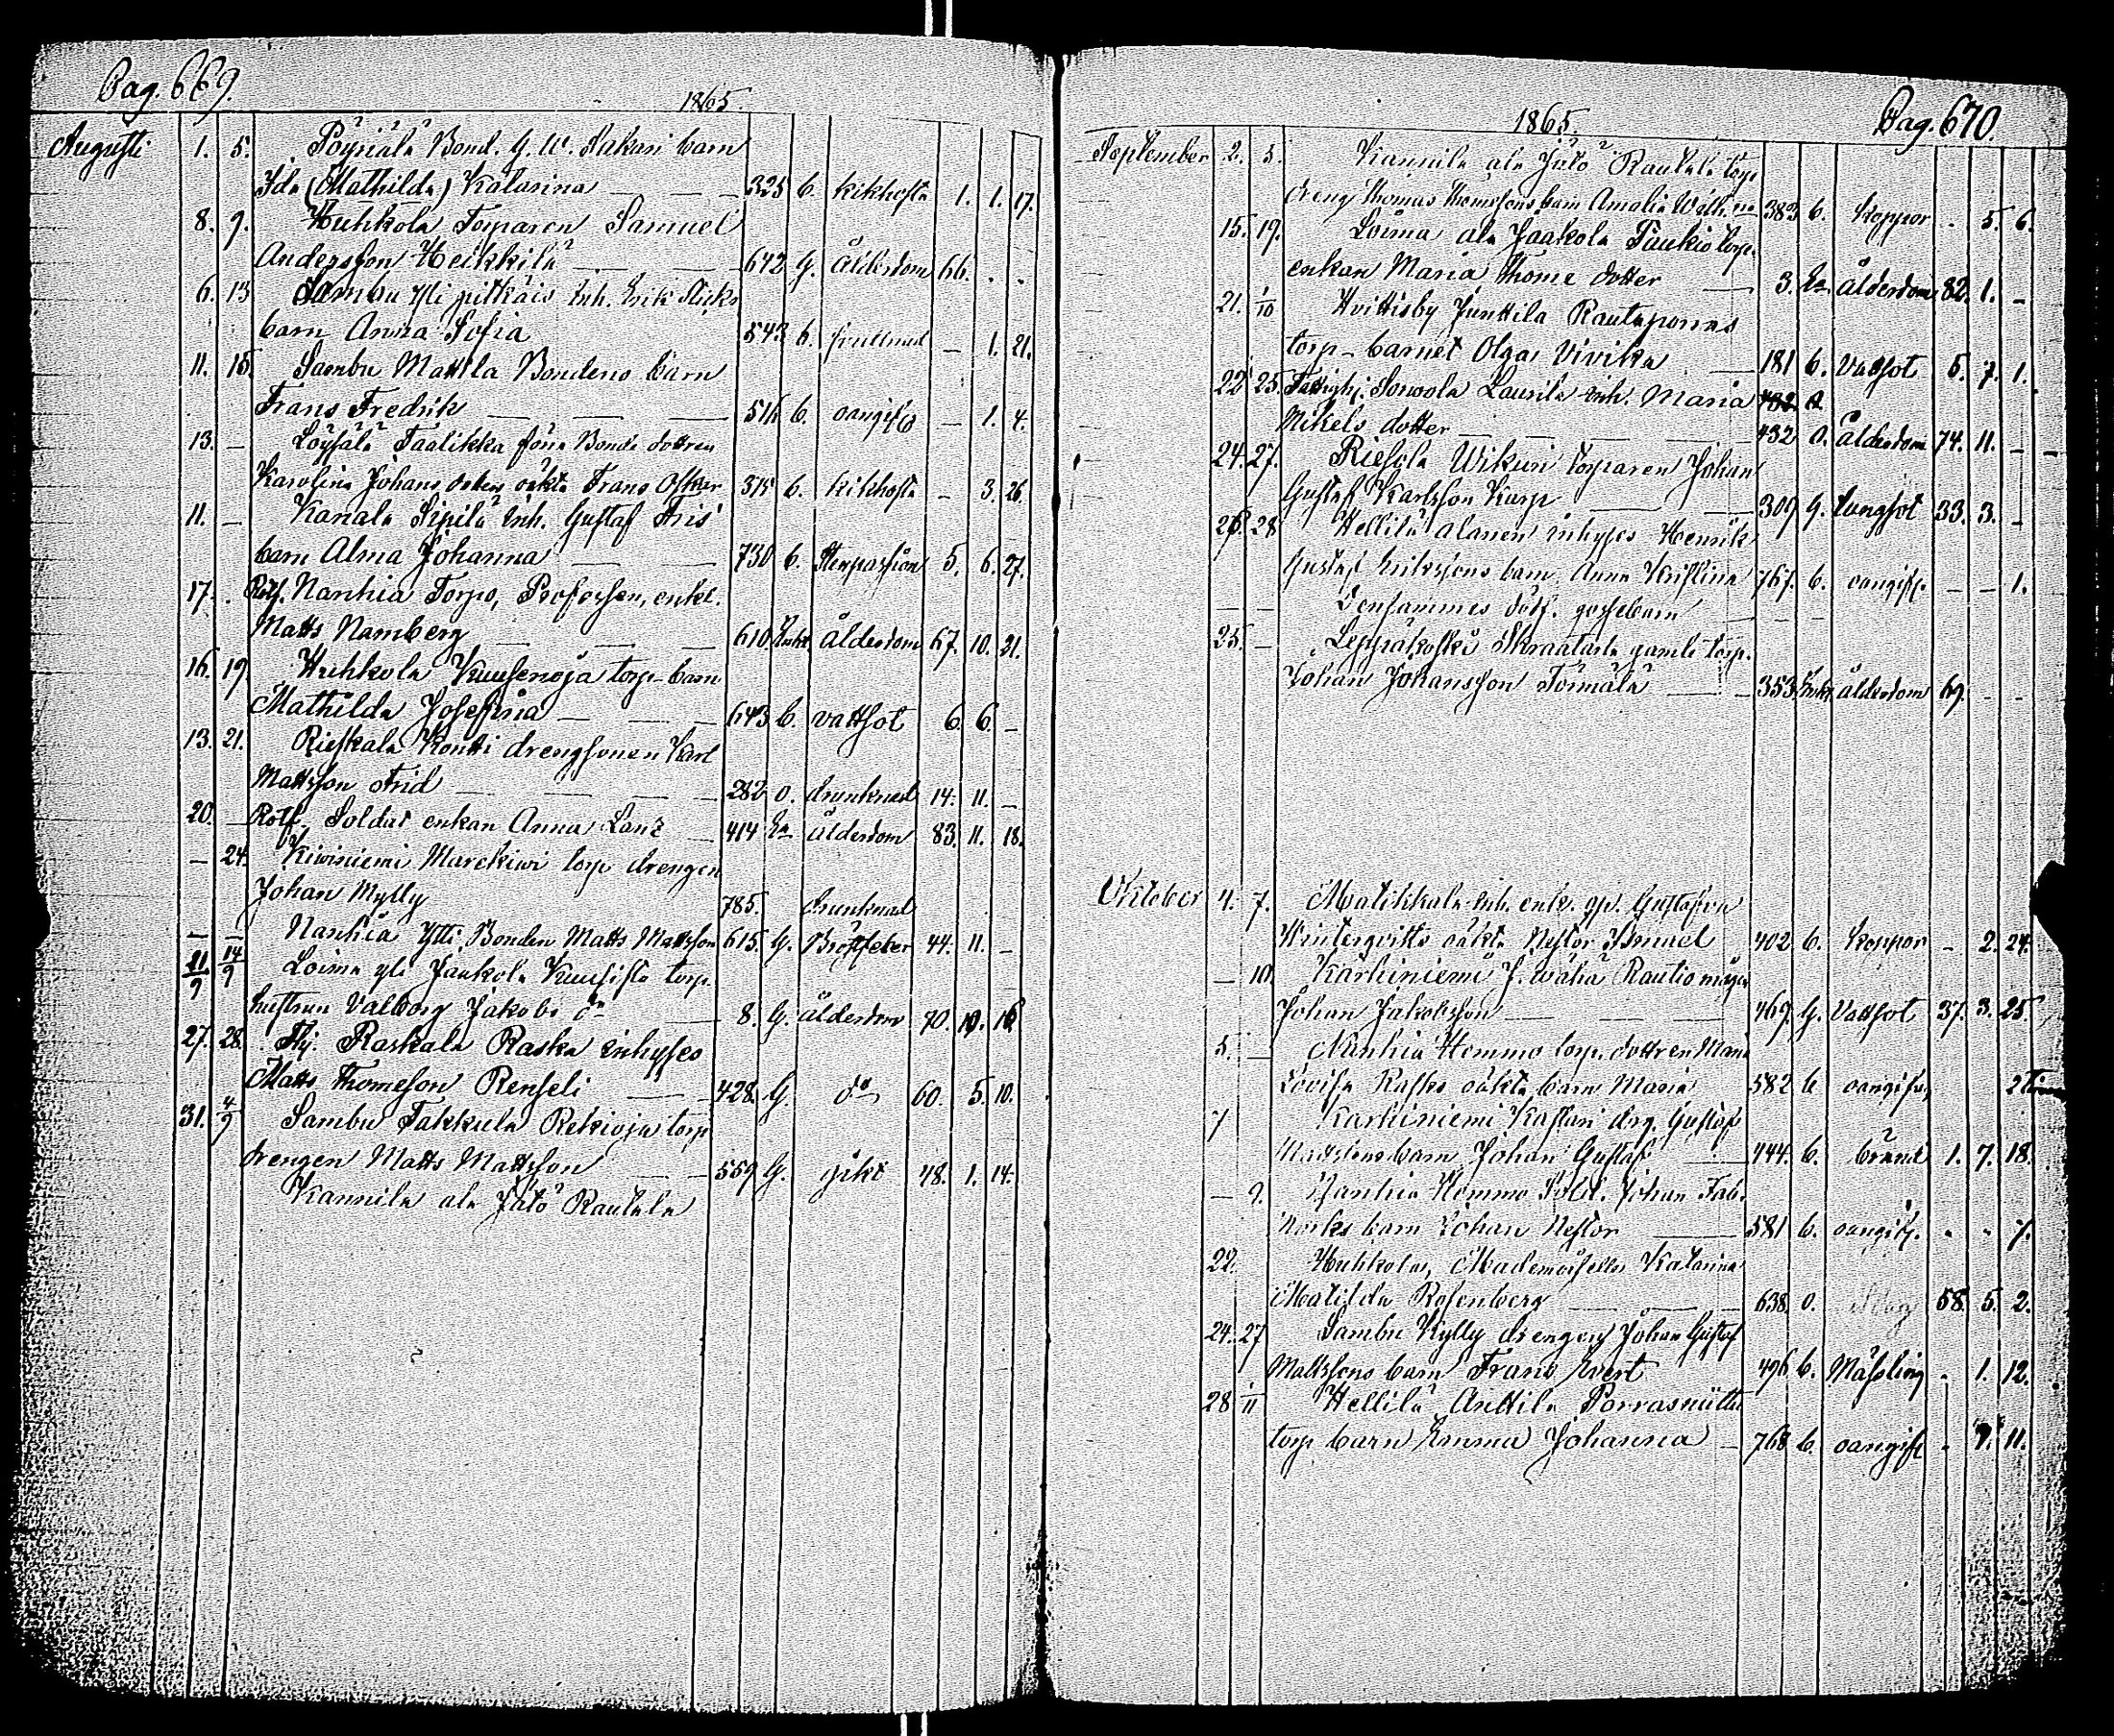 Pag. 669.
1865.
Augusti 1. 5. Pöyriälä Bond. G. W. Sakari barn
Ida (Mathilda) Katarina — — 325 b. kikhosta 1. 1. 17.
8. 9. Huhkola Torparen Samuel
Andersson Heikkilä — — 642 G. ålderdom 66. . .
6. 13 Sambu yli pitkäis Inh. Erik
barn Anna Sofia 543 b. — 1. 21.
11. 15. Sambu Mattila Bondens barn
Frans Fredrik — — — 516 b. oangifv — 1. 4.
13. — Löysälä Taalikka Bonde dottren
Karolina Johans oäkta Frans Oskar 315 b. kikhosta — 3. 26
11. — Karala Sipilä Inh. Gustaf Fris
barn Alma Johanna — — 730 b. 5. 6. 27.
17. . Rotf. Nanhia Torps, enkl.
Matts Namberg — — — 610. Enkl ålderdom 67. 10. 21.
16. 19. Huhkola Kuusenoja torp. barn
Mathilda Josefina — — — 643 b. vattsot 6. 6. —
13. 21. Rieskala Kontti drengsonen Karl
Mattsson Frid — — — — 282 o. drunknad 14. 11. —
20. — Rotf. Soldat enkan Anna Lanz — 414 Ea ålderdom 83. 11. 18.
— 24. Kiviniemi Marckiwi torp. drengen
Johan Mylly 785. drunknad
— — Nanhia Ylli Bonden Matts Mattsson 615. G. Bröstfeber 44. 11. —
11/9 14/9 Loima yli Jaakola Kuusisto torp.
hustrun Valborg Jakobs dr — 8. G. ålderdom 70. 10. 16.
27. 28. Ftj. Raskala Raska inhyses
Matts Thomeson Renseli — — 428. G. do 60. 5. 10.
31. 4/9 Sambu Takkula Rekioja torp.
drengen Matts Mattsson — — 559 G. gikt 48. 1. 14.
Kannila ala Jätö Rautala
1865.
Pag. 670.
September 2. 3. Kannila ala Jätö Rautala torp.
dreng Thomas Thomssons barn Amalia Wilh.na 383 b. koppor . 5. 6.
15. 19. Loima ala Jaakola Tuukio torp.
enkan Maria Thome dotter — 3. Ea ålderdom 82. 1. —
21. 1/10 Hvittisby Junttila Rautaporras
torp. barnet Olga Vivika — 181 b. vattsot 5. 7. 1.
22 25. Fattighj. Sonoola Laurila inh. Maria 432
Mikels dotter — — — 432 o. ålderdom 74. 11. —
24. 27. Riesola Wikuri torparen Johan
Gustaf Karlsson Karp — — 309 G. lungsot 33. 3. —
26. 28 Hellilä alanen inhyses Henrik
Gustaf Erikssons barn Anna Kristina 767. b. oangifv. — — 1.
— — Densammes dödf. gossebarn — — — —
25. — Leppäkoski Skraatarla gamle torp.
Johan Johansson Törmälä — — 353 Enkl. ålderdom 69. — —
Oktober 4. 7. Matikkala inh. enk. Gustafva
Wintergvists oäkta Nestor Ismael 402 b. koppor — 2. 24.
— 10. Karhiniemi J. wähä Rautio mågen
Johan Jakobsson — — — 469. G. Vattsot 37. 3. 25.
5. — Nanhia Hemmo torp. dottren Maria
Lovisa Rasks oäkta barn Maria 582 b. oangifv. 2
7 Karhiniemi Kastari drg. Gustaf
barn Johan Gustaf — 444. b. bränd 1. 7. 18.
— 9. Nanhia Hemmo Sold. Johan
Norks barn Johan Nestor — 581 b. oangifv. . . 7.
22. Huhkola, Mademoiselle Katarina
Matilda Rosenberg — — — 638 o. slag 58. 5. 2.
24. 27 Sambu Kylly drengen Johan Gustaf
Mattssons barn Frans Evert 496 b. Mässling . 1. 12.
28 1/11 Hellilä Anttila Porrasniittu
torp barn Emma Johanna — 768 b. oangifv . 9. 11.